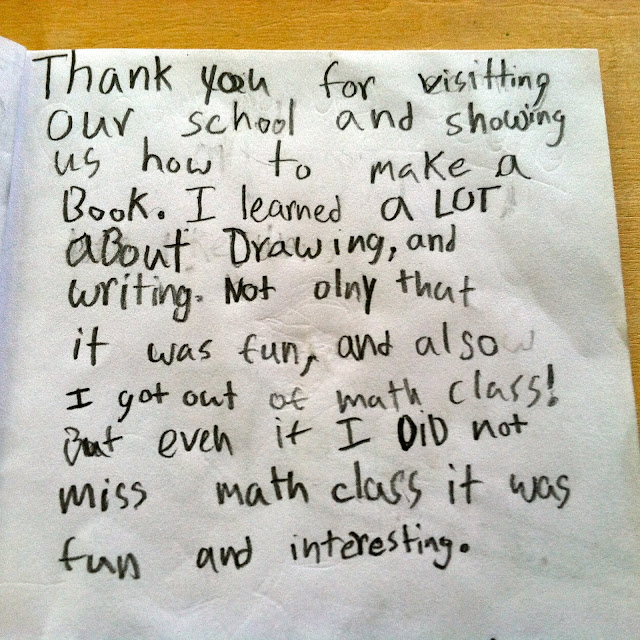 Thank you for visitting
our school and showing
us how to make a
Book. I learned a LOT
aBout Drawing, and
writing. Not olny that
it was fun, and also
I got out of math class!
But even if I DiD not
miss math class it was
fun and interesting.